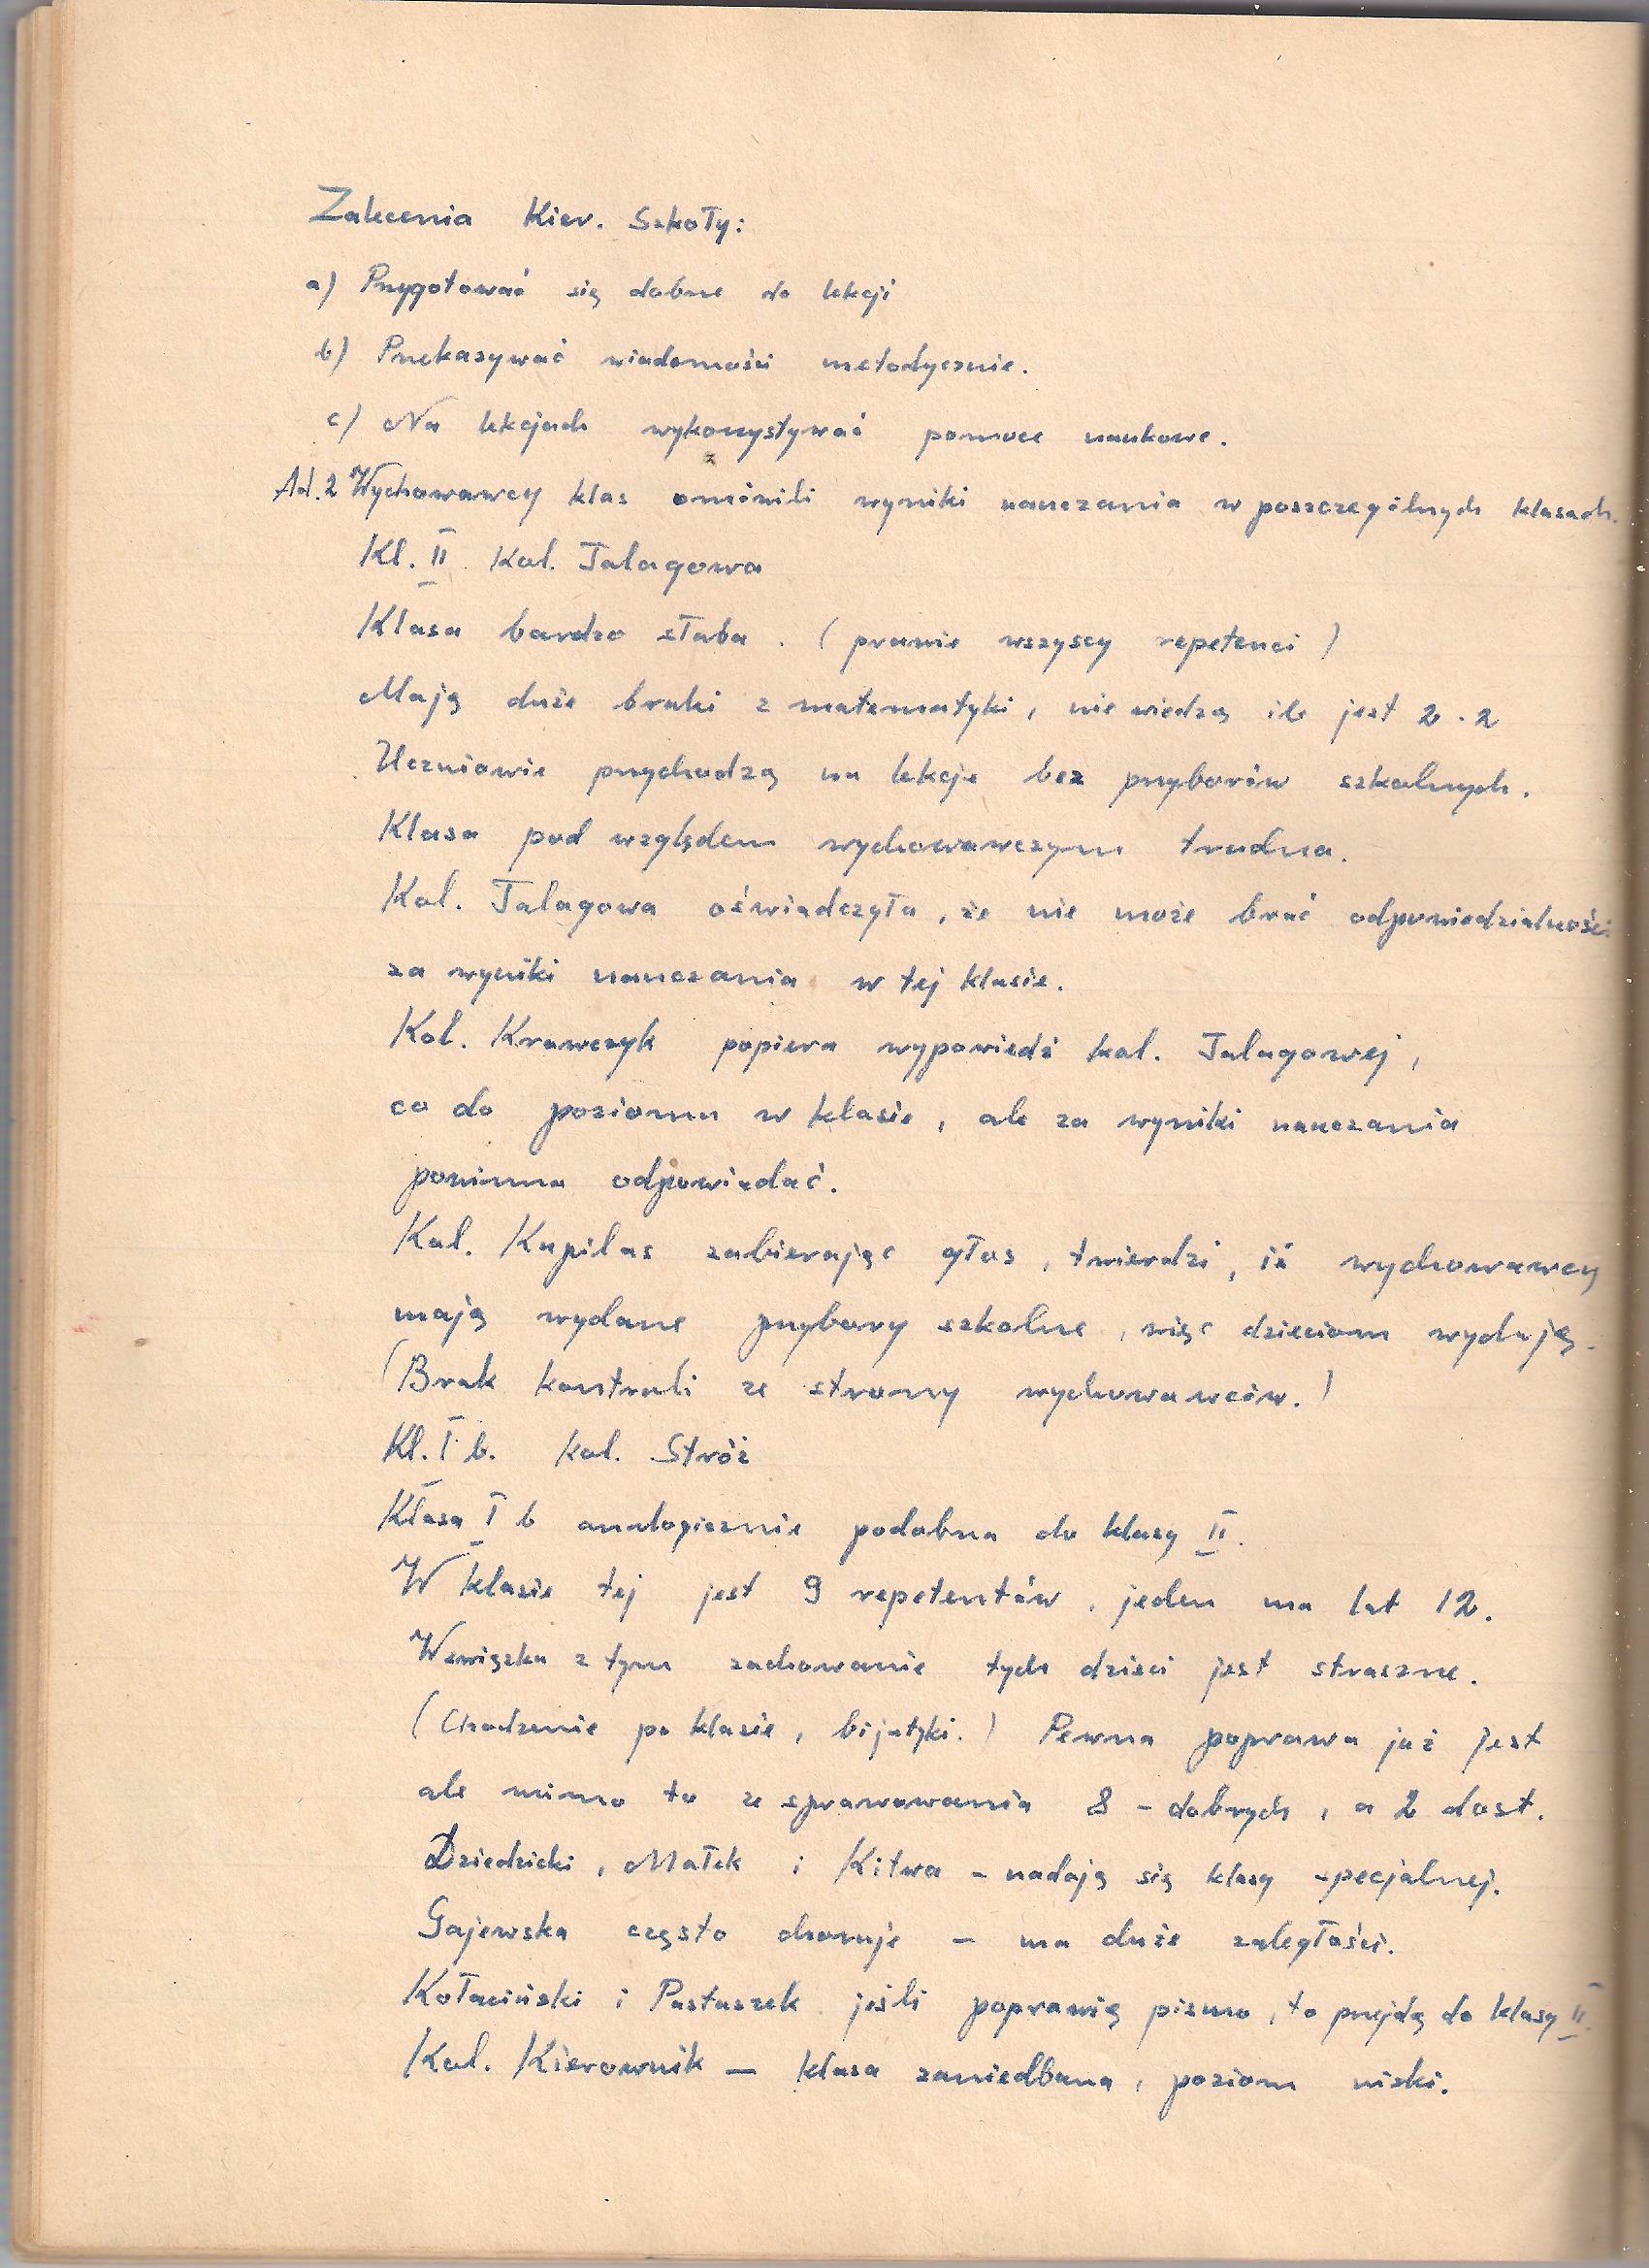 Zalecenia Kier. Szkoły:
a) Przygotować się dobrze do lekcji
b) Przekazywać wiadomości metodycznie.
c) Na lekcjach wykorzystywać pomoce naukowe.
Ad. 2 Wychowawcy klas omówili wyniki nauczania w poszczególnych klasach.
Kl. II kol. Jalagowa
Klasa bardzo słaba. (prawie wszyscy repetenci)
Mają duże braki z matematyki, nie wiedzą ile jest 2 . 2
Uczniowie przychodzą na lekcje bez przyborów szkolnych.
Klasa pod względem wychowawczym trudna.
Kol. Jalagowa oświadczyła, że nie może brać odpowiedzialności
za wyniki nauczania w tej klasie.
Kol. Krawczyk popiera wypowiedź kol. Jalagowej,
co do poziomu w klasie, ale za wyniki nauczania
powinna odpowiadać.
Kol. Kupilas zabierając głos, twierdzi, iż wychowawcy
mają wydane przybory szkolne, więc dzieciom wydają.
(Brak kontroli ze strony wychowawców.)
Kl. I b. kol. Stróż
Klasa I b analogicznie podobna do klasy II.
W klasie tej jest 9 repetentów, jeden ma lat 12.
Wzwiązku z tym zachowanie tych dzieci jest straszne.
(Chodzenie po klasie, bijatyki.) Pewna poprawa już jest
ale mimo to ze sprawowania 8 - dobrych, a 2 dost.
Dziedzicki, Małek i Kitwa - nadają się klasy specjalnej.
Gajewska często choruje - ma duże zaległości.
Kołaciński i Pastuszek jeśli poprawią pismo, to przejdą do klasy II.
Kol. Kierownik - klasa zaniedbana, poziom niski.